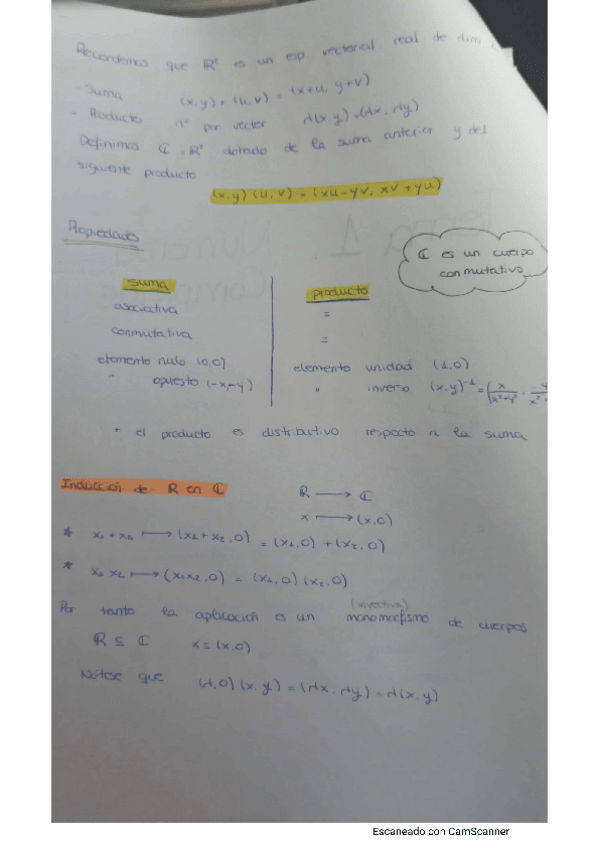 Recordemos que ℝ² es un esp vectorial real de dim
- Suma (x,y)+(u,v) = (x+u, y+v)
- Producto nº por vector λ(x,y)=(λx, λy)
Definimos ℂ = ℝ² dotado de la suma anterior y del
siguiente producto
(x,y)(u,v) = (xu-yv, xv+yu)
Propiedades
ℂ es un cuerpo
conmutativo
suma
producto
asociativa =
conmutativa =
elemento nulo (0,0)
elemento unidad (1,0)
" opuesto (-x,-y)
" inverso (x,y)⁻¹ = (x/(x²+y²),
* el producto es distributivo respecto a la suma
Inducción de ℝ en ℂ
ℝ ⟶ ℂ
x ⟼ (x,0)
* x₁+x₂ ⟼ (x₁+x₂,0) = (x₁,0)+(x₂,0)
* x₁x₂ ⟼ (x₁x₂,0) = (x₁,0)(x₂,0)
(inyectiva)
Por tanto la aplicación es un monomorfismo de cuerpos
ℝ ⊆ ℂ x ≡ (x,0)
Nótese que (λ,0)(x,y) = (λx, λy) = λ(x,y)
Escaneado con CamScanner